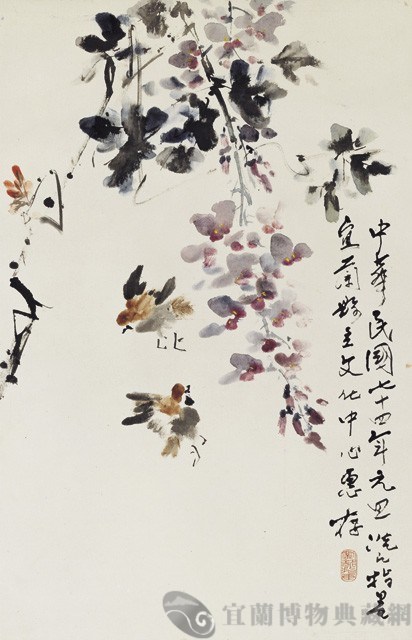 中華民國七十四年元旦洗心指墨
宜蘭縣立文化中心惠存
宜蘭博物典藏網